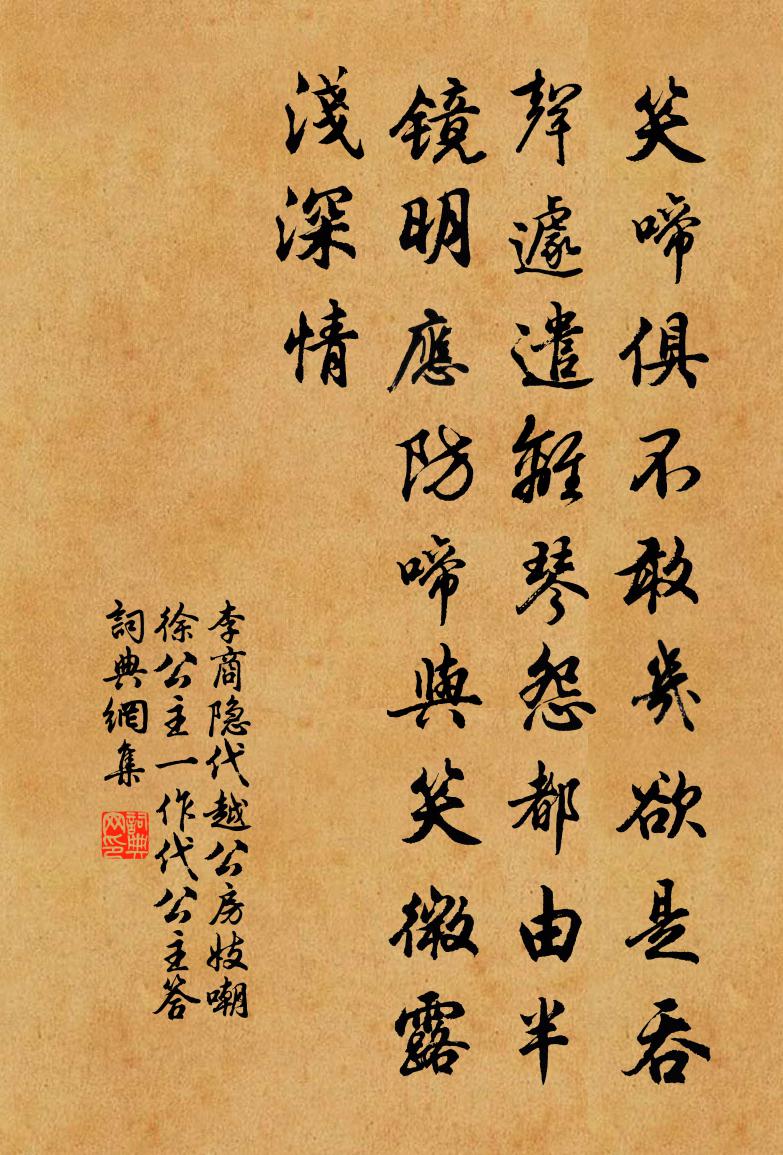 笑啼俱不敢幾欲是吞
聲遽遣離琴怨都由半
鏡明應防啼與笑微露
淺深情
李商隐代越公房妓嘲
徐公主一作代公主答
詞典網集
詞典网印